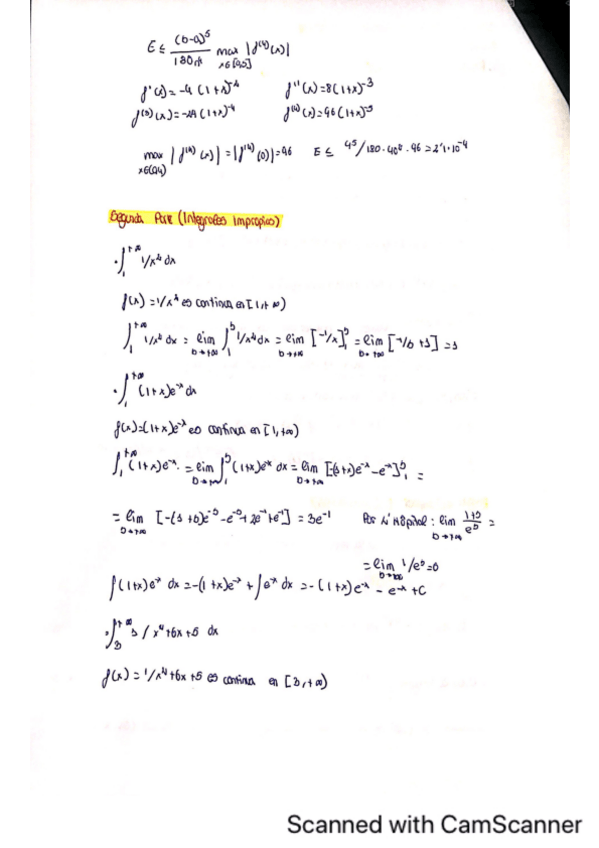 E ≤ (b-a)⁵ / 180n⁴ max |f⁽⁴⁾(x)|
x∈[0,5]
f'(x) = -4 (1+x)⁻² f''(x) = 8(1+x)⁻³
f⁽³⁾(x) = -24 (1+x)⁻⁴ f⁽⁴⁾(x) = 96 (1+x)⁻⁵
max |f⁽⁴⁾(x)| = |f⁽⁴⁾(0)| = 96 E ≤ 4⁵/180·40⁴·96 = 2'1·10⁻⁴
Segunda Parte (Integrales impropias)
· ∫₁^+∞ 1/x² dx
f(x) = 1/x² es continua en [1,+∞)
∫₁^+∞ 1/x² dx = lim ∫₁^b 1/x² dx = lim [-1/x]₁^b = lim [-1/b + 1] = 1
b→+∞ b→+∞ b→+∞
· ∫₁^+∞ (1+x)e⁻ˣ dx
f(x) = (1+x)e⁻ˣ es continua en [1,+∞)
∫₁^+∞ (1+x)e⁻ˣ = lim ∫₁^b (1+x)e⁻ˣ dx = lim [-(1+x)e⁻ˣ - e⁻ˣ]₁^b =
b→+∞ b→+∞
= lim [-(1+b)e⁻ᵇ - e⁻ᵇ + 2e⁻¹ + e⁻¹] = 3e⁻¹ Por L'Hôpital: lim 1+b / eᵇ =
b→+∞ b→+∞
= lim 1/eᵇ = 0
b→+∞
∫(1+x)e⁻ˣ dx = -(1+x)e⁻ˣ + ∫e⁻ˣ dx = -(1+x)e⁻ˣ - e⁻ˣ + C
· ∫₃^+∞ 1/x⁴+6x+5 dx
f(x) = 1/x⁴+6x+5 es continua en [3,+∞)
Scanned with CamScanner